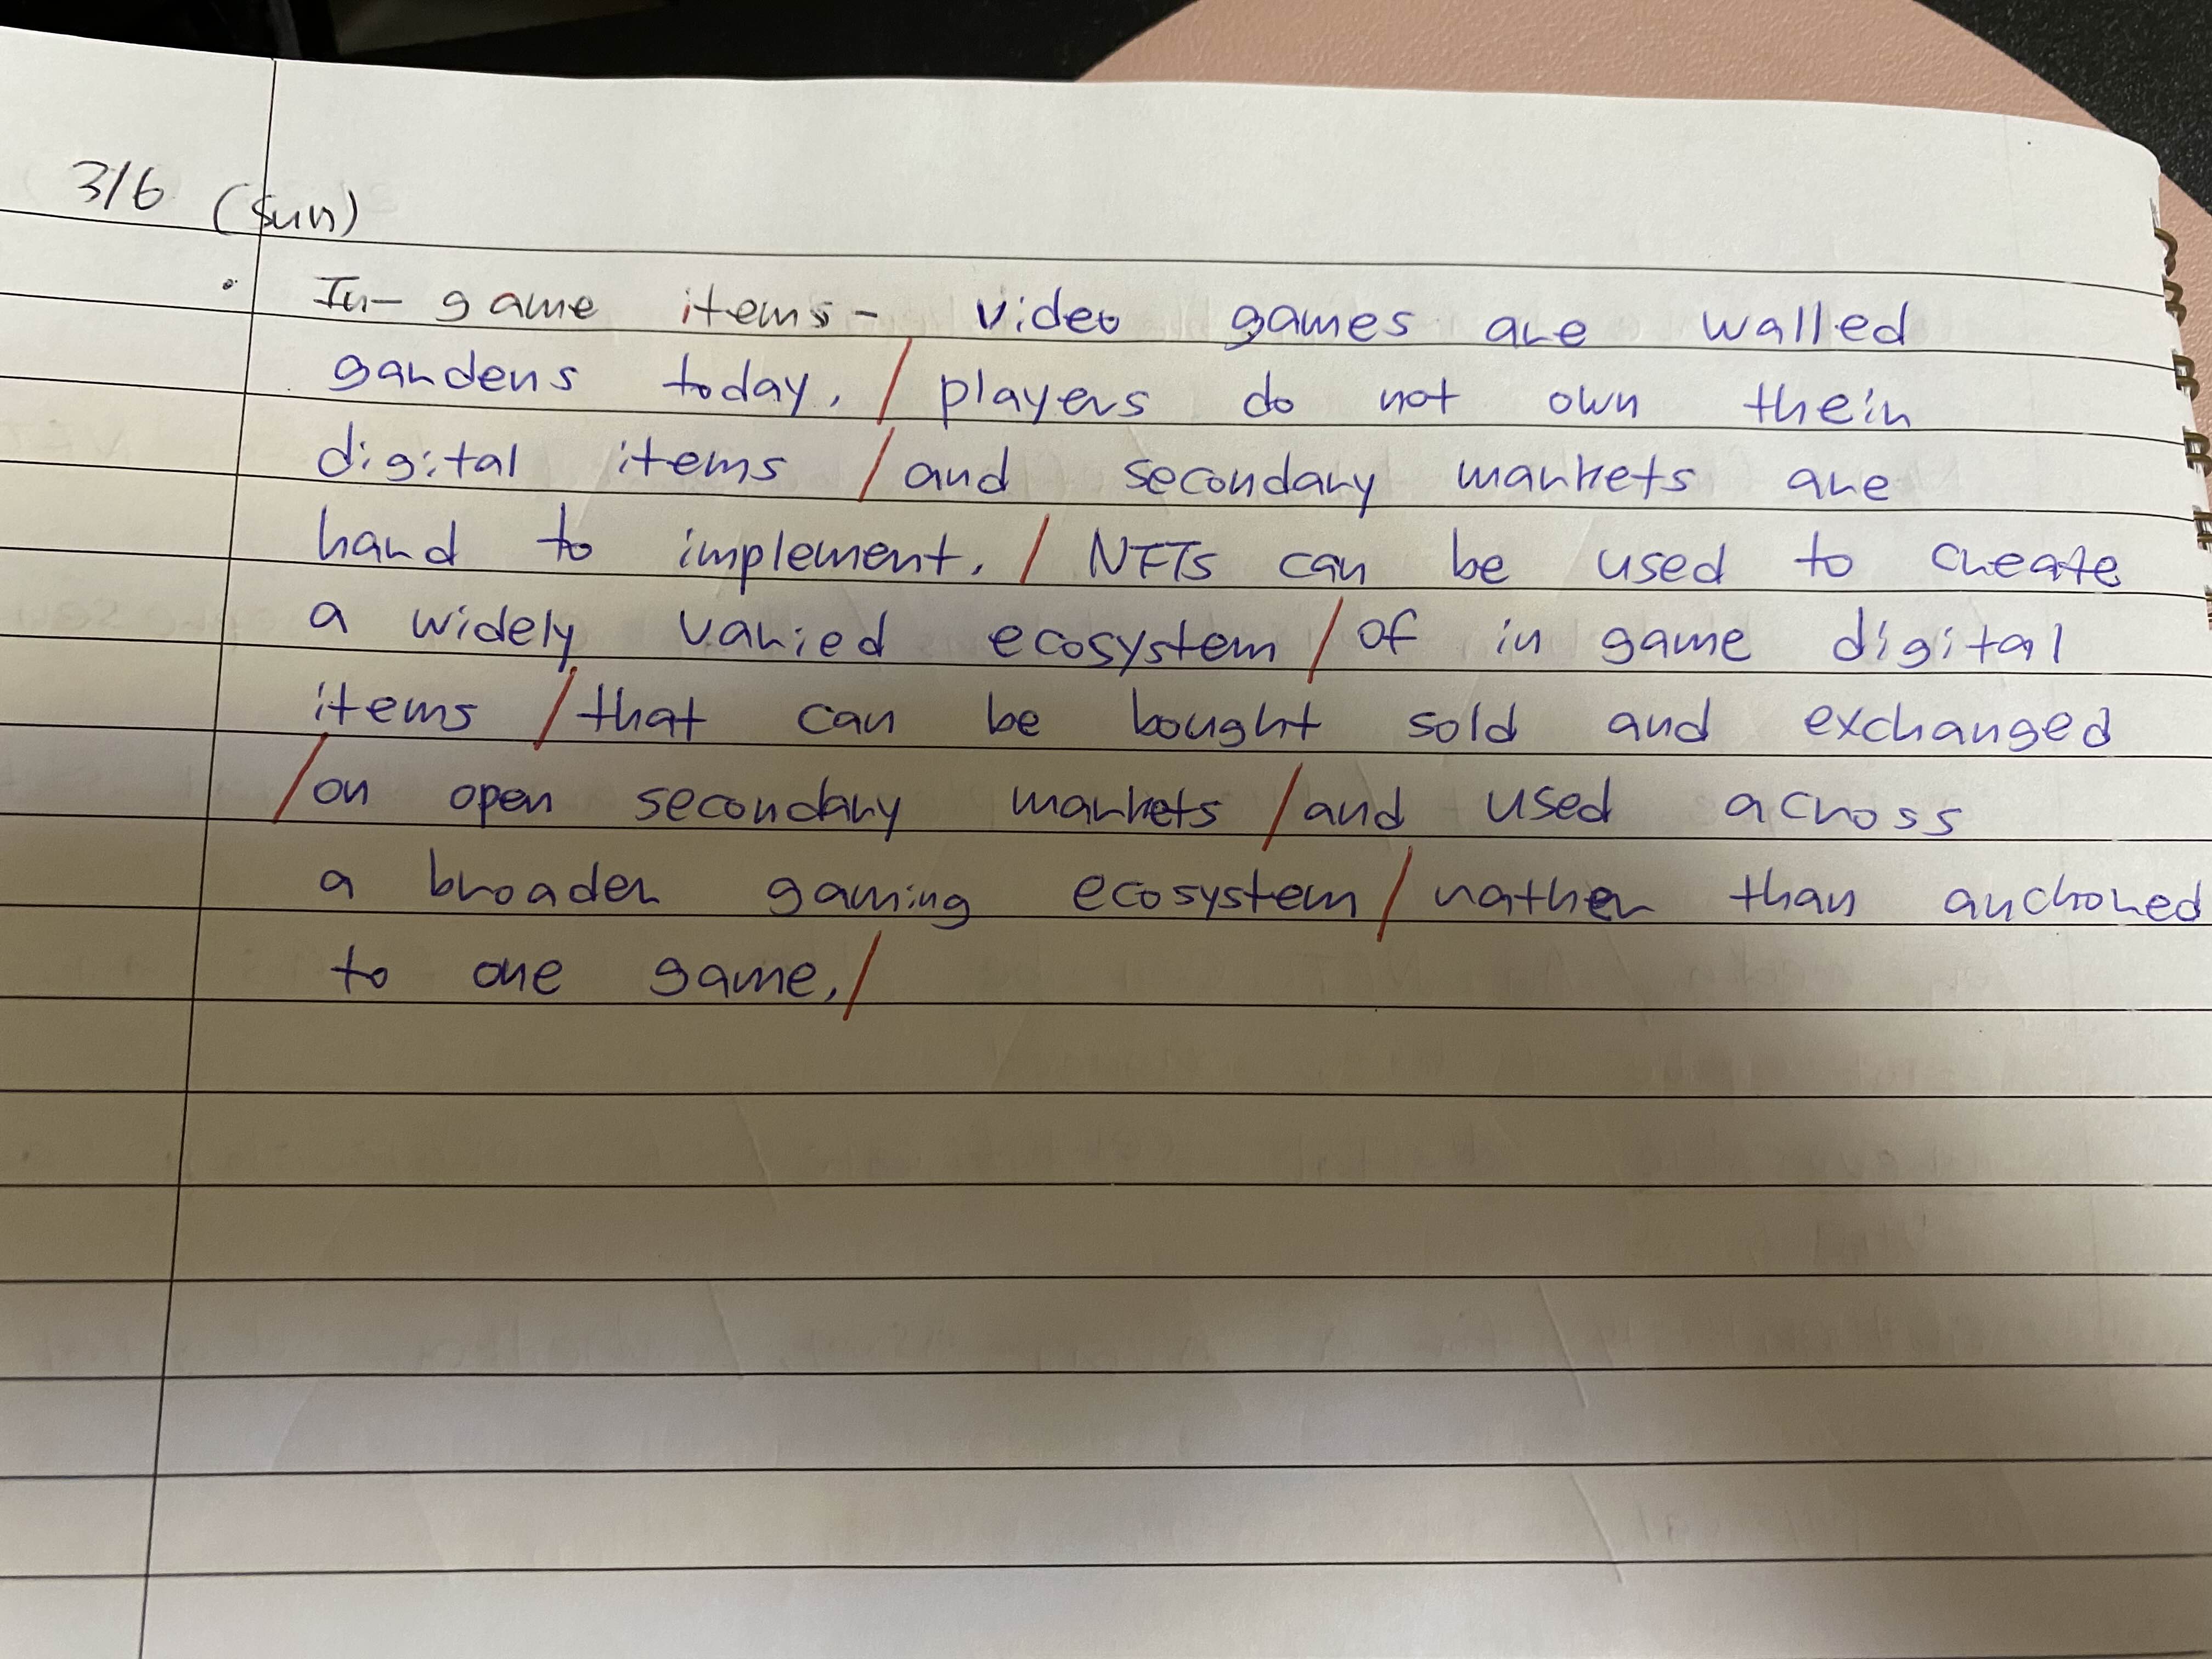 3/6 (Sun)
· In-game items - video games are walled
gardens today. / players do not own their
digital items / and secondary markets are
hard to implement. / NFTs can be used to create
a widely varied ecosystem / of in game digital
items / that can be bought sold and exchanged
/ on open secondary markets / and used across
a broader gaming ecosystem / rather than anchored
to one game. /